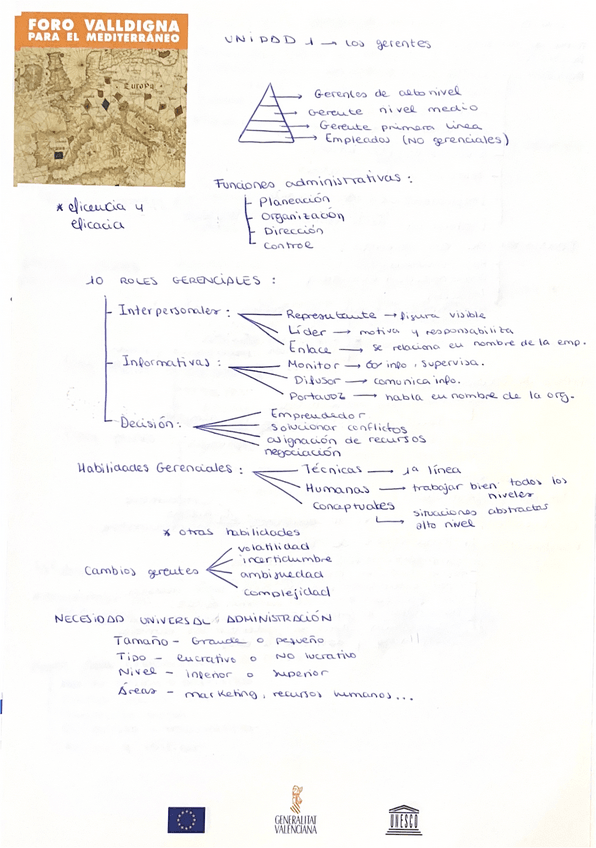 FORO VALLDIGNA
PARA EL MEDITERRÁNEO
UNIDAD 1 → Los gerentes
Gerentes de alto nivel
Gerente nivel medio
Gerente primera línea
Empleados (NO gerenciales)
Funciones administrativas:
* eficencia y
eficacia
Planeación
Organización
Dirección
Control
10 ROLES GERENCIALES:
Interpersonales:
Representante → figura visible
Líder → motiva y responsabiliza
Enlace → se relaciona en nombre de la emp.
Informativas:
Monitor → info, supervisa.
Difusor → comunica info.
Portavoz → habla en nombre de la org.
Decisión:
Emprendedor
solucionar conflictos
asignación de recursos
negociación
Habilidades Gerenciales:
Técnicas → 1ª línea
Humanas → trabajar bien todos los
niveles
conceptuales
situaciones abstractas
alto nivel
* otras habilidades
Cambios gerentes
volatilidad
incertidumbre
ambigüedad
complejidad
NECESIDAD UNIVERSAL ADMINISTRACIÓN
Tamaño - Grande o pequeño
Tipo - lucrativo o NO lucrativo
Nivel - inferior o superior
Áreas - marketing, recursos humanos...
GENERALITAT
VALENCIANA
UNESCO